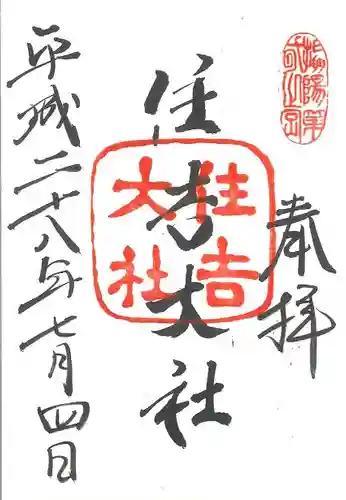 奉拝
住吉大社
住吉大社
平成二十八年七月四日